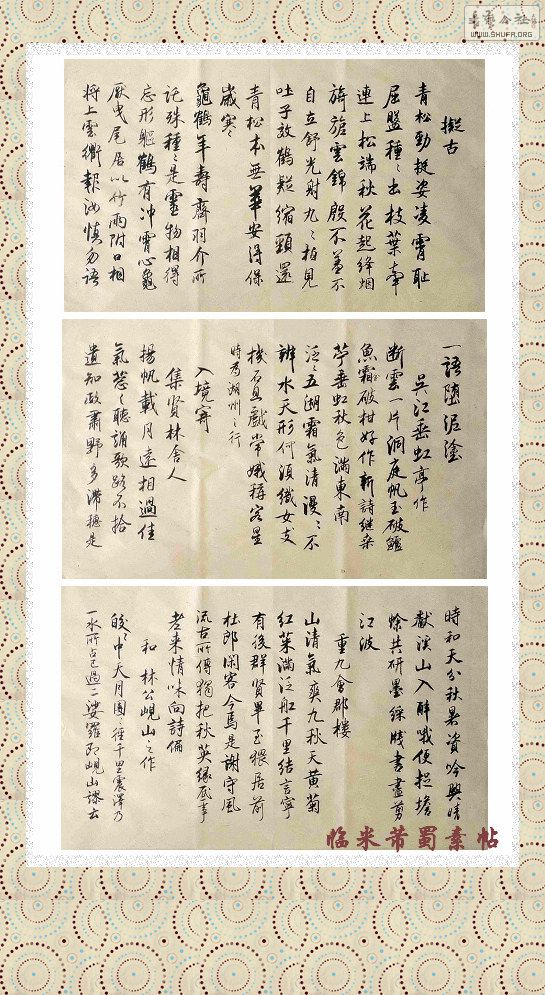 擬古
青松勁挺姿凌霄耻
屈盤種〻出枝葉牽
連上松端秋花起绛烟
旖旎雲錦殷不羞不
自立舒光射丸〻柏見
吐子效鶴疑縮頸還
青松本無華安得保
歲寒〻
龜鶴年壽齊羽介所
託殊種〻是靈物相得
忘形軀鶴有冲霄心龜
厭曳尾居以竹兩附口相
将上雲衢報汝慎勿語
一語堕泥塗
吳江垂虹亭作
断雲一片洞庭帆玉破鱸
魚霜破柑好作新詩继桑
苧垂虹秋色满東南
泛〻五湖霜氣清漫〻不
辨水天形何須織女支
機石且戲常娥稱客星
時為湖州之行
入境寄
集賢林舍人
揚帆載月遠相過佳
氣葱〻聽誦歌路不拾
遺知政肅野多滯穗是
時和天分秋暑資吟興晴
獻溪山入醉哦便捉蟾
蜍共研墨綵牋書盡剪
江波
重九會郡樓
山清氣爽九秋天黄菊
红茱满泛船千里結言寧
有後群賢畢至猥居前
杜郎閑客今焉是謝守風
流古所傳獨把秋英缘底事
老来情味向詩偏
和林公峴山之作
皎〻中天月團〻徑千里震澤乃
一水所占已過二娑羅即峴山謬云
临米芾蜀素帖
WWW.SHUFA.ORG